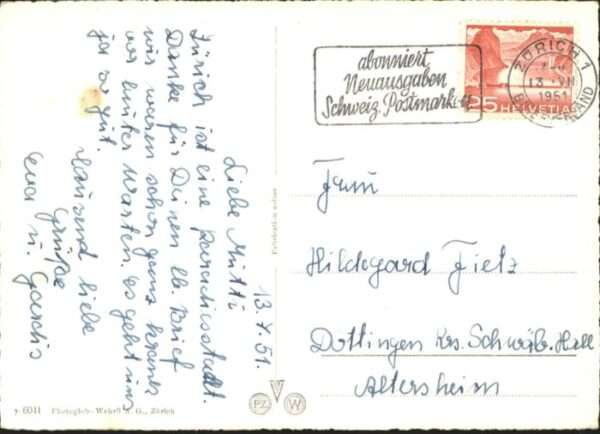 Liebe Mutti 13.7.51.
Zürich ist eine Paradiesstadt.
Danke für Deinen lb. Brief
wir waren schon ganz krank
vor lauter warten. Es geht uns
ja so gut.
Tausend liebe
Grüße
Eure u.
abonniert
Neuausgaben
Schweiz. Postmarken
ZÜRICH 1
13. VII
1951
BRIEFVERSAND
25 HELVETIA
Frau
Hildegard Fietz
Dottingen Krs. Schwäb. Hall
Altersheim
7 6011 Photoglob-Wehrli A. G., Zürich
PZ W